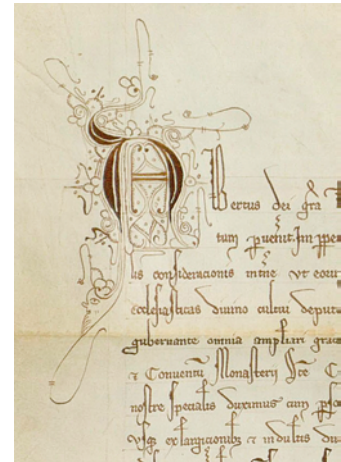 Albertus dei gra
tum puenit. Im ppe
us consideracionis intne vt eour
ecclesiasticas diuino cultui deputa
gubernante omnia ampliari grac
⁊ Conuentu Monasterij Sce C
nostre specialis duximus cum pso
Vsq ex largicionib ⁊ indultis du